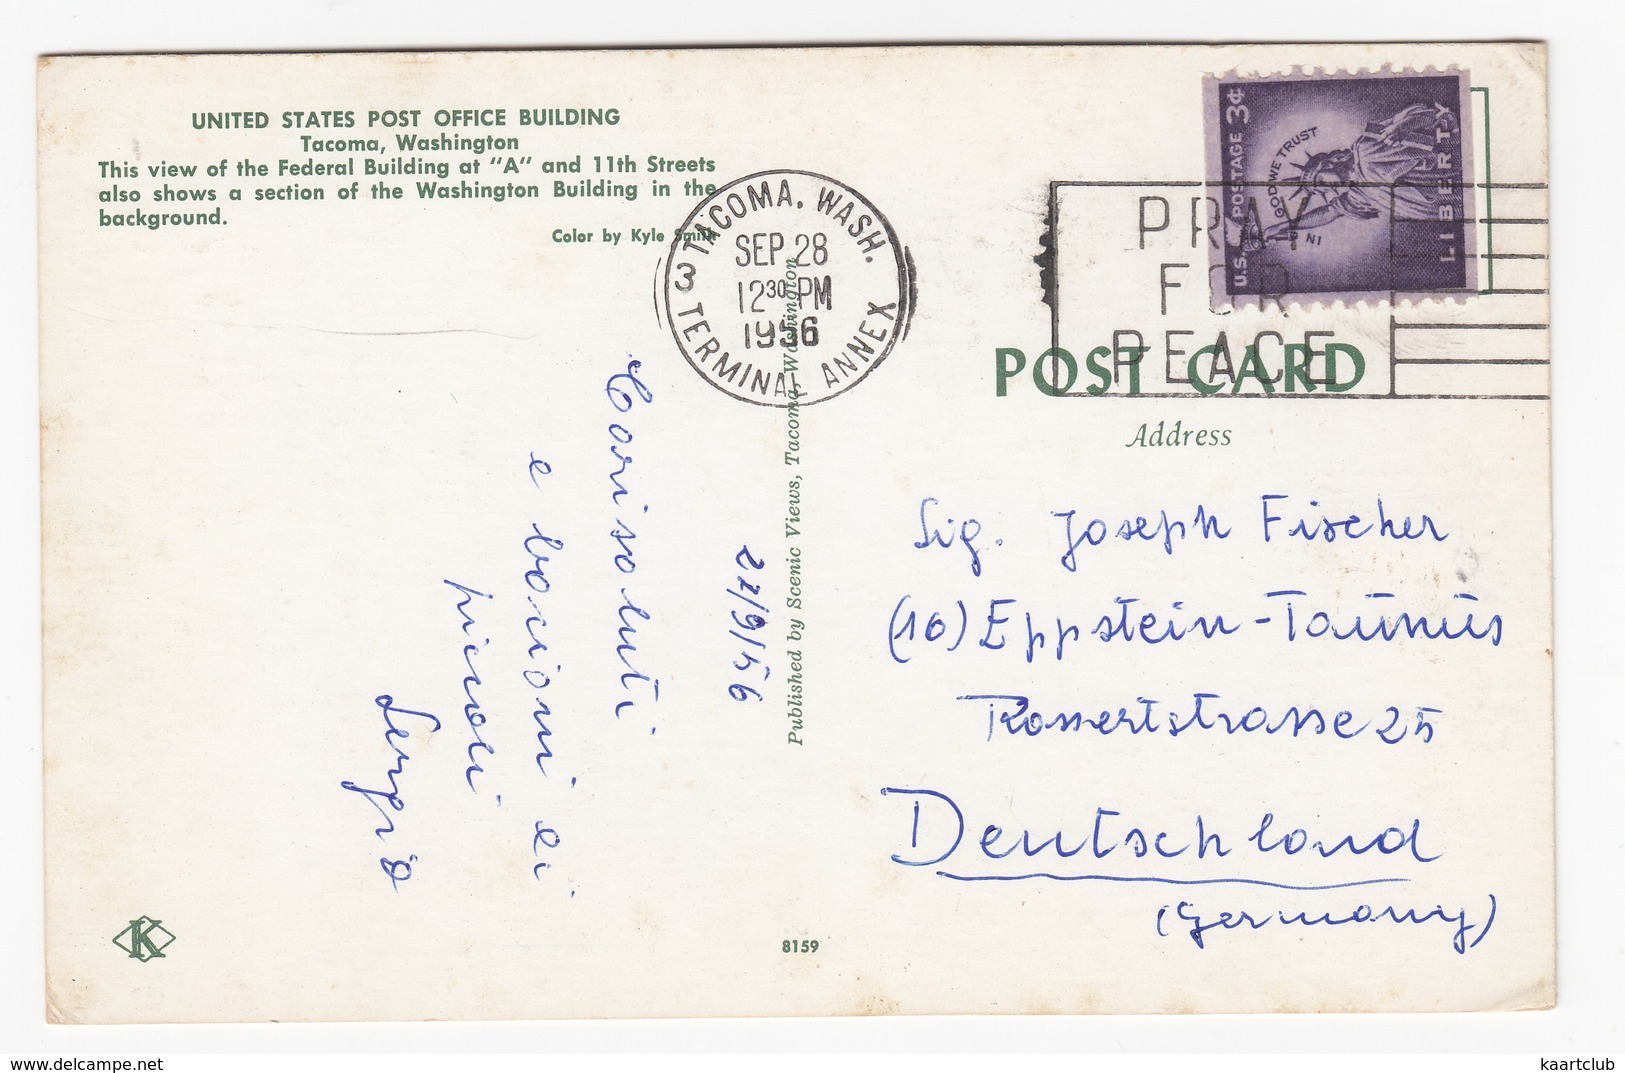 UNITED STATES POST OFFICE BUILDING
Tacoma, Washington
This view of the Federal Building at "A" and 11th Streets
also shows a section of the Washington Building in the
background.
Color by Kyle Smith
TACOMA, WASH.
3
SEP 28
12 30 PM
1956
TERMINAL ANNEX
PRAY
FOR
PEACE
U.S. POSTAGE 3¢
IN GOD WE TRUST
LIBERTY
POST CARD
Address
22/9/56
Cari saluti
e bacioni ai
piccoli
Sergio
Published by Scenic Views, Tacoma, Washington
Sig. Joseph Fischer
(16) Eppstein-Taunus
Rossertstrasse 25
Deutschland
(Germany)
K
8159
delcampe.net
kaartclub